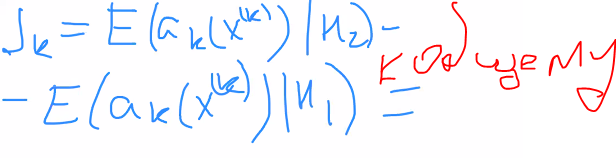 J_k = E(a_k(x^(k)) | H_2) -
- E(a_k(x^(k)) | H_1) =
к общему